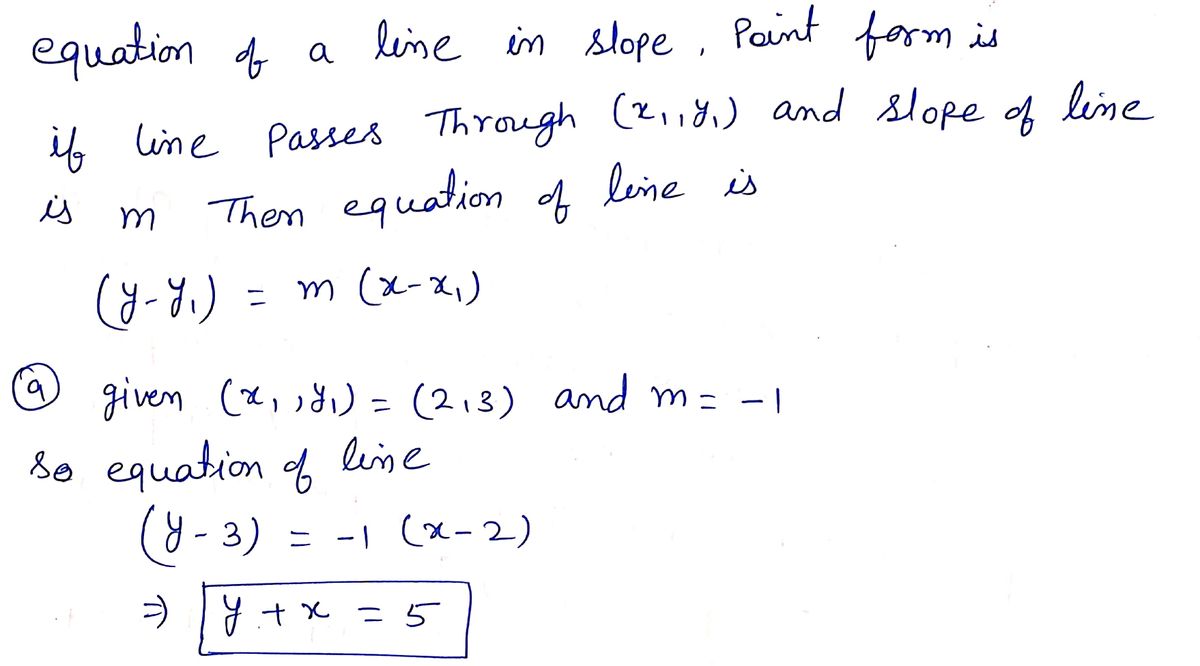 equation of a line in slope, Point form is
if line Passes Through (x₁,y₁) and slope of line
is m Then equation of line is
(y-y₁) = m (x-x₁)
ⓐ given (x₁,y₁) = (2,3) and m = -1
So equation of line
(y-3) = -1 (x-2)
⇒ y + x = 5